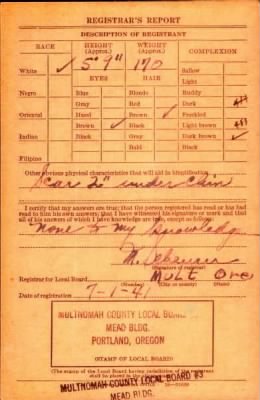 REGISTRAR'S REPORT
DESCRIPTION OF REGISTRANT
RACE HEIGHT (Approx.) WEIGHT (Approx.) COMPLEXION
White ✓ 5' 9" 170 Sallow
EYES HAIR Light
Negro Blue Blonde Ruddy
Gray Red Dark
Oriental Hazel Brown ✓ Freckled
Brown ✓ Black Light brown
Indian Black Gray Dark brown ✓
Bald Black
Filipino
Other obvious physical characteristics that will aid in identification
Scar 2" under chin
I certify that my answers are true; that the person registered has read or has had
read to him his own answers; that I have witnessed his signature or mark and that
all of his answers of which I have knowledge are true, except as follows:
None to my knowledge
M.
Registrar for Local Board Mult Ore
(Number) (City or county) (State)
Date of registration 7-1-41
MULTNOMAH COUNTY LOCAL BOARD
MEAD BLDG.
PORTLAND, OREGON
(STAMP OF LOCAL BOARD)
(The stamp of the Local Board having jurisdiction of the registrant
shall be placed in the
MULTNOMAH COUNTY LOCAL BOARD #3
MEAD BLDG.